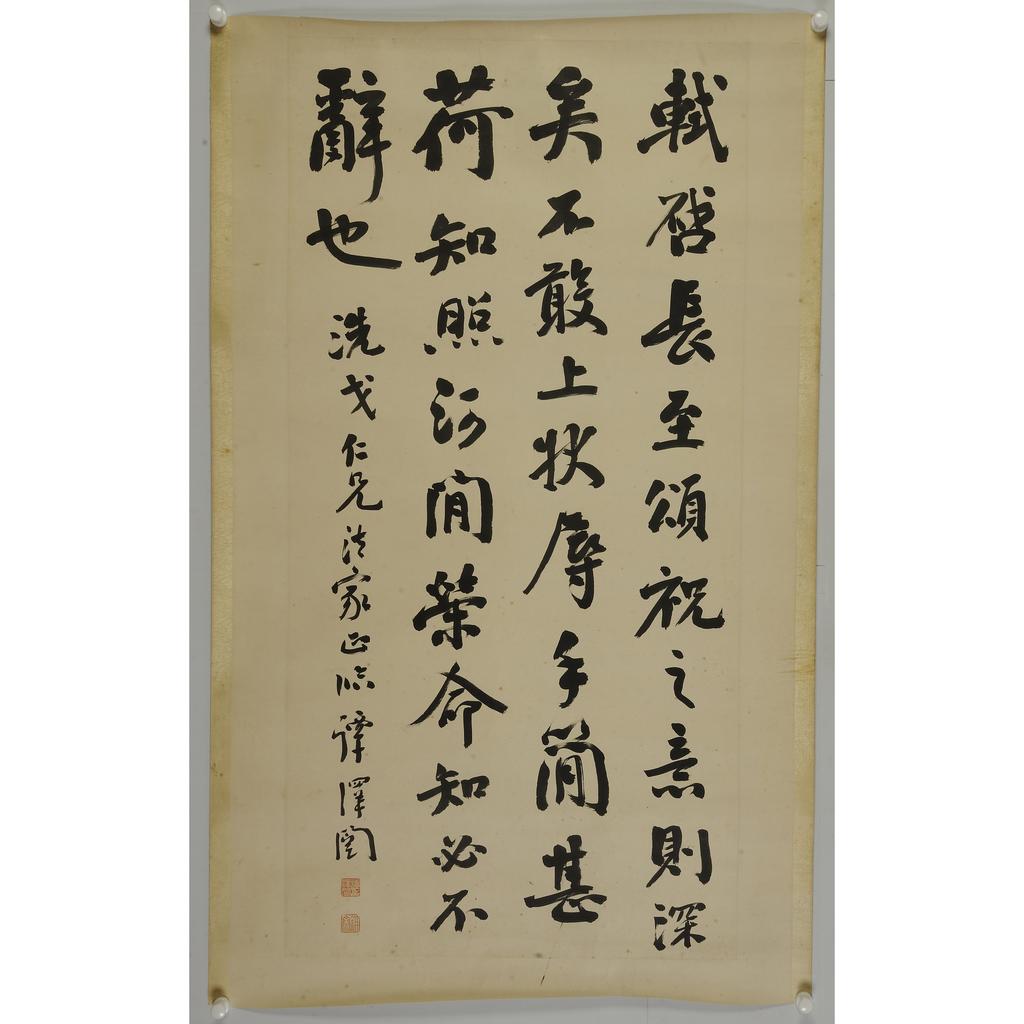 軾啓長至頌祝之意則深
矣不敢上狀辱手簡甚
荷知照河間榮命知必不
辭也
洗戈仁兄法家正臨譚澤闓